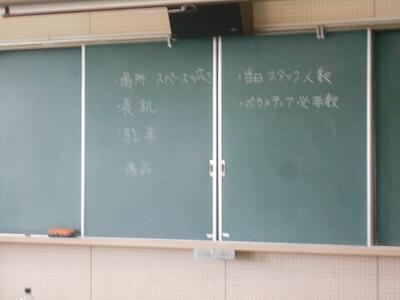 ・場所 スペースの広さ
・長机
・駐車
・備品
・当日スタッフ人数
・ボランティア必要数